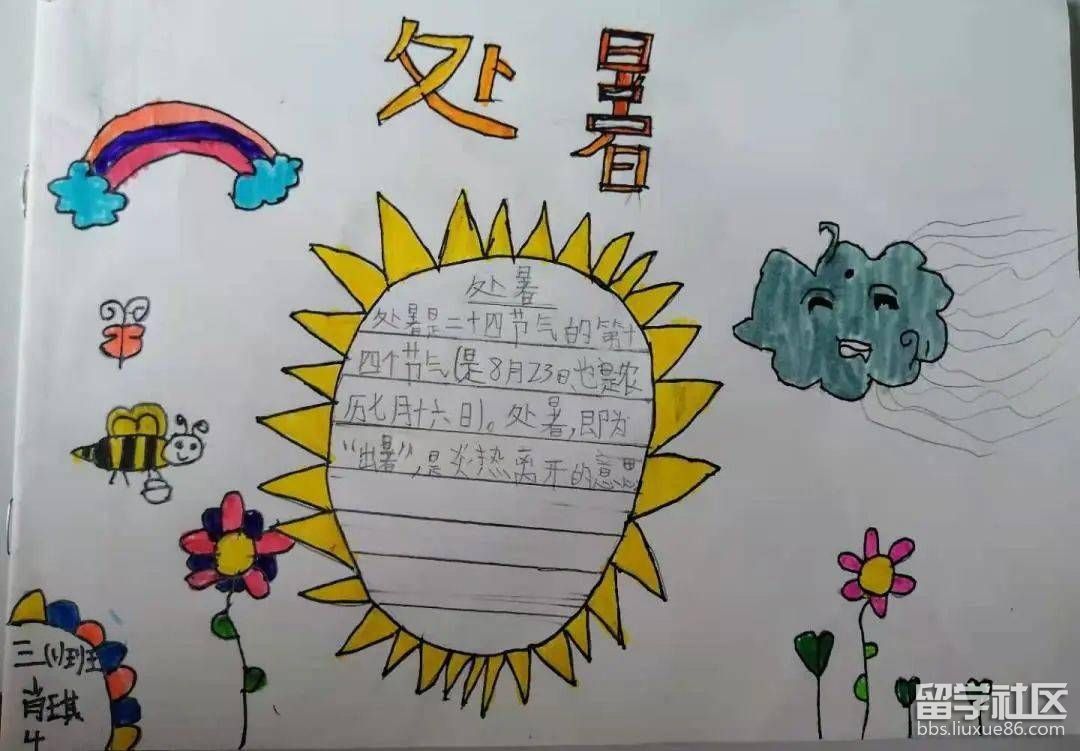 处暑
处暑
处暑是二十四节气的第十
四个节气(是8月23日,也是农
历七月十六日)。处暑,即为
“出暑”,是炎热离开的意思
三(1)班
肖琪
留学社区
bbs.liuxue86.com